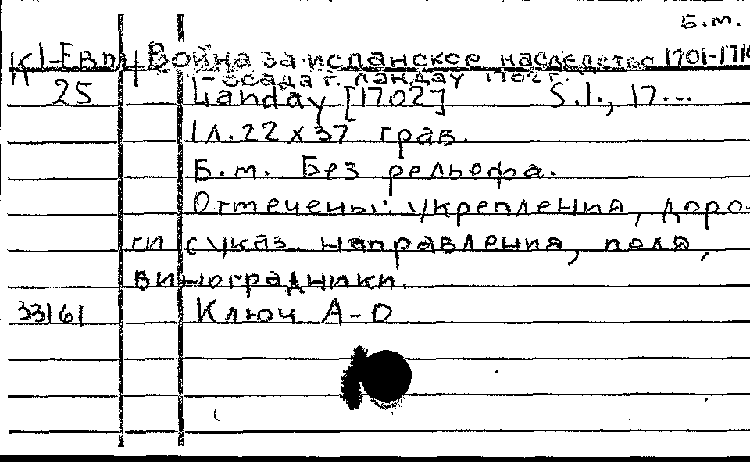 Б.м.
К1-Евр. Война за испанское наследство 1701-171
- осада г. Ландау 1702 г.
25 Landau [1702] S.l., 17...
1 л. 22 х 37 грав.
Б.м. Без рельефа.
Отмечены: укрепления, доро-
ги с указ. направления, поля,
виноградники.
33161 Ключ A-D